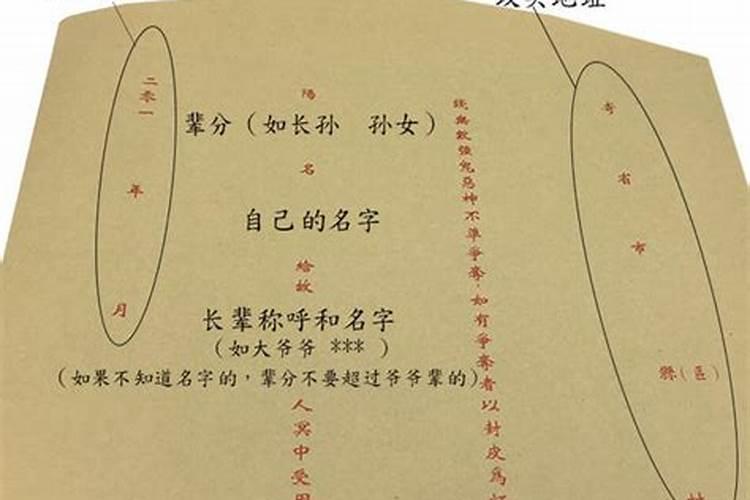 寄省市縣(區)村
強鬼惡神不準爭奪，如有爭奪者以封皮為
陽
辈分（如长孙 孙女）
名
自己的名字
給故
长辈称呼和名字
（如大爷爷 *** ）
（如果不知道名字的，辈分不要超过爷爷辈的）
人冥中受用
二零一年月